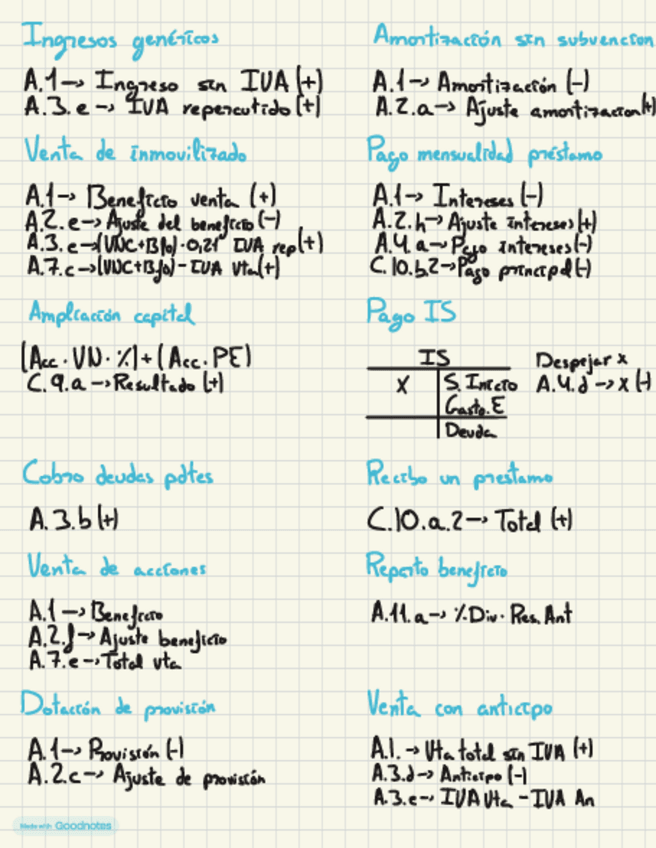 Ingresos genéricos
A.1→ Ingreso sin IVA (+)
A.3.e→ IVA repercutido (+)
Venta de inmovilizado
A.1→ Beneficio venta (+)
A.2.e→ Ajuste del beneficio (-)
A.3.e→(VNC+Bfo)·0,21 IVA rep(+)
A.7.c→(VNC+Bfo)-IVA Vta(+)
Ampliación capital
(Acc·VN·%)+(Acc·PE)
C.9.a→Resultado (+)
Cobro deudas pdtes
A.3.b(+)
Venta de acciones
A.1→Beneficio
A.2.f→Ajuste beneficio
A.7.e→Total vta
Dotación de provisión
A.1→ Provisión (-)
A.2.c→ Ajuste de provisión
Made with Goodnotes
Amortización sin subvención
A.1→ Amortización (-)
A.2.a→ Ajuste amortización(+)
Pago mensualidad préstamo
A.1→ Intereses (-)
A.2.h→Ajuste intereses(+)
A.4.a→Pago intereses(-)
C.10.b.2→Pago principal(-)
Pago IS
IS
X
S.Inicio
Gasto.E
Deuda
Despejar x
A.4.d→x (-)
Recibo un prestamo
C.10.a.2→Total (+)
Reparto beneficio
A.11.a→ %Div·Res.Ant
Venta con anticipo
A.1.→Vta total sin IVA (+)
A.3.d→ Anticipo (-)
A.3.e→ IVA Vta - IVA An